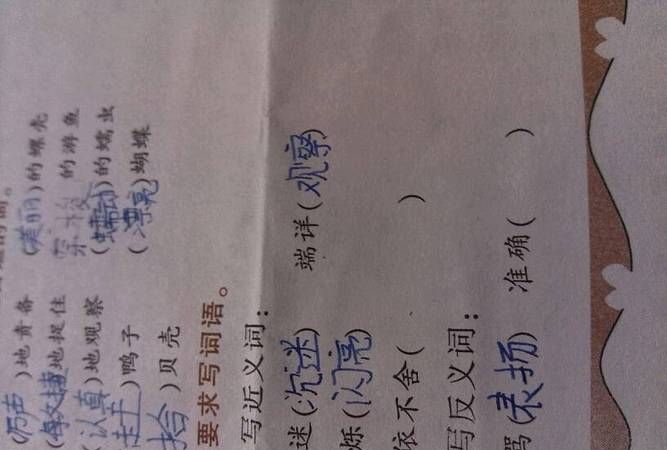 (厉声)地责备 (美丽)的螺壳
地捉住 的游鱼
(认真)地观察 (蠕动)的蠕虫
(赶上)鸭子 (漂亮)蝴蝶
拾)贝壳
要求写词语。
写近义词:
迷(沉迷) 端详(观察)
烁(闪亮)
依不舍( )
写反义词:
骂(表扬) 准确( )